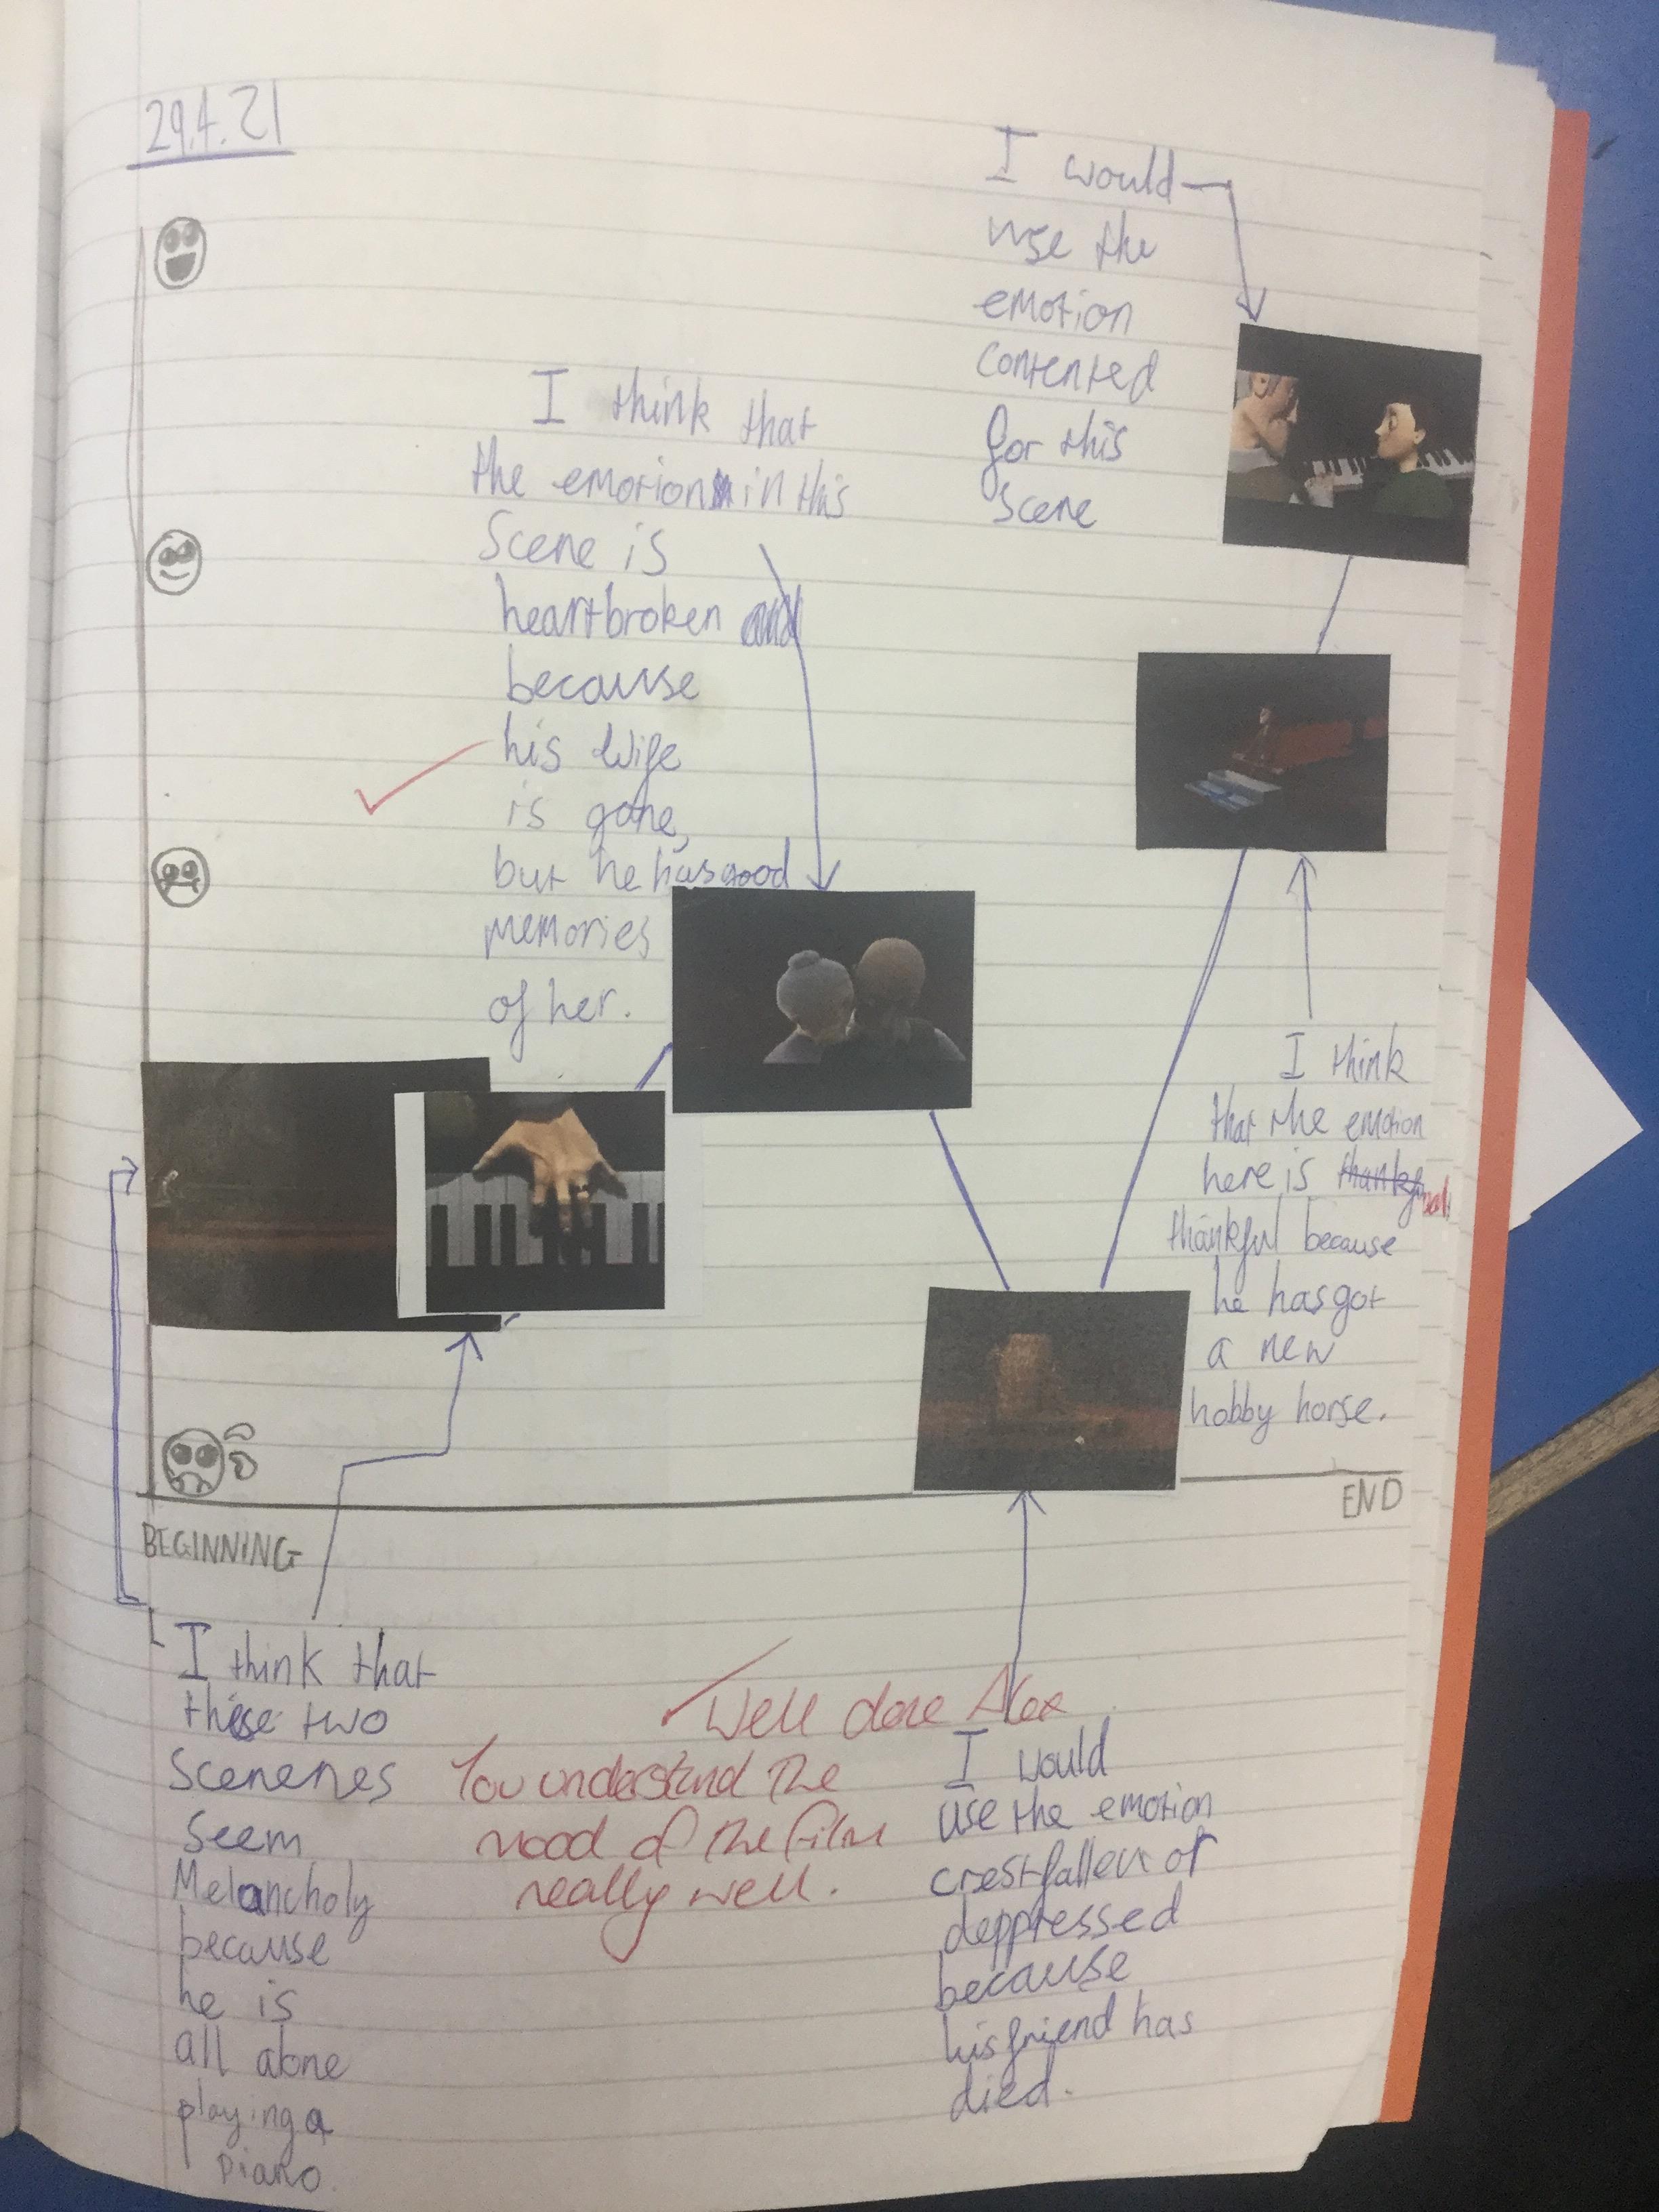 29.4.21
I would
use the
emotion
contented
for this
scene
I think that
the emotion in this
Scene is
heartbroken
because
his wife
is gone,
but he has good
memories
of her.
I think
that the emotion
here is thankful
thankful because
he has got
a new
hobby horse.
END
BEGINNING
I think that
these two
scenenes
seem
Melancholy
because
he is
all alone
playing a
piano.
Well done Alex
You understand the
mood of the film
really well.
I would
use the emotion
crestfallen or
deppressed
because
his friend has
died.